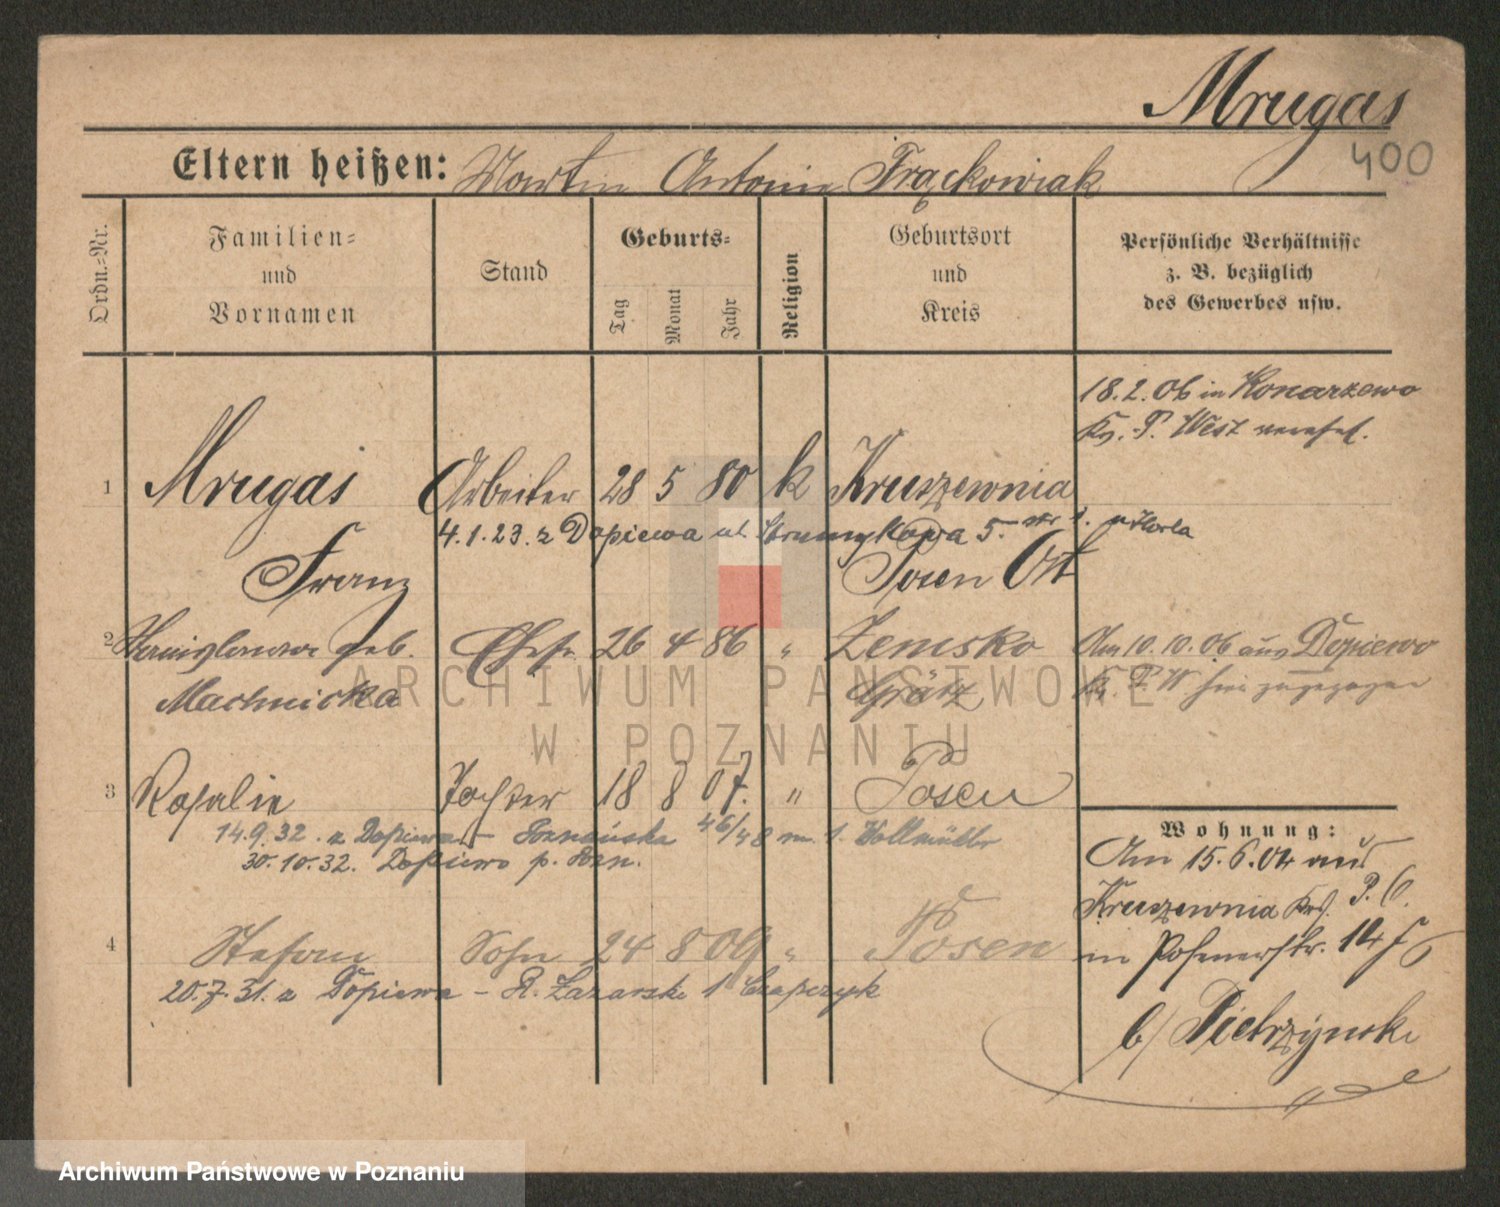 Mrugas
400
Eltern heißen: Martin Antonie Frąckowiak
Ordn.-Nr.
Familien-
und
Vornamen
Stand
Geburts-
Tag
Monat
Jahr
Religion
Geburtsort
und
Kreis
Persönliche Verhältnisse
z. B. bezüglich
des Gewerbes usw.
18.2.06 in Konarzewo
Kr. P. West verehel.
1 Mrugas Arbeiter 28 5 80 k Kruszewnia
4.1.23. z Dopiewa ul. Strumykowa 5.
Franz Posen Ost
2 Stanislawa geb. Ehefr. 26 4 86 " Zemsko
Am 10.10.06 aus Dopiewo
Machnicka Grätz
Kr. P. W hinzugezogen
3 Rosalie Tochter 18 8 07. " Posen
14.9.32. z Dopiewa - Poznańska 46/48 m. 1. Wollmüller
30.10.32. Dopiewo p. Pozn.
4 Stefan Sohn 24 8 09 " Posen
20.7.31. z Dopiewa - R. Łazarski 1 Czapczyk
Wohnung:
Am 15.6.04 aus
Kruszewnia Krs. P. O.
in Posenerstr. 14
b/ Pietrzynski
ARCHIWUM PAŃSTWOWE
W POZNANIU
Archiwum Państwowe w Poznaniu